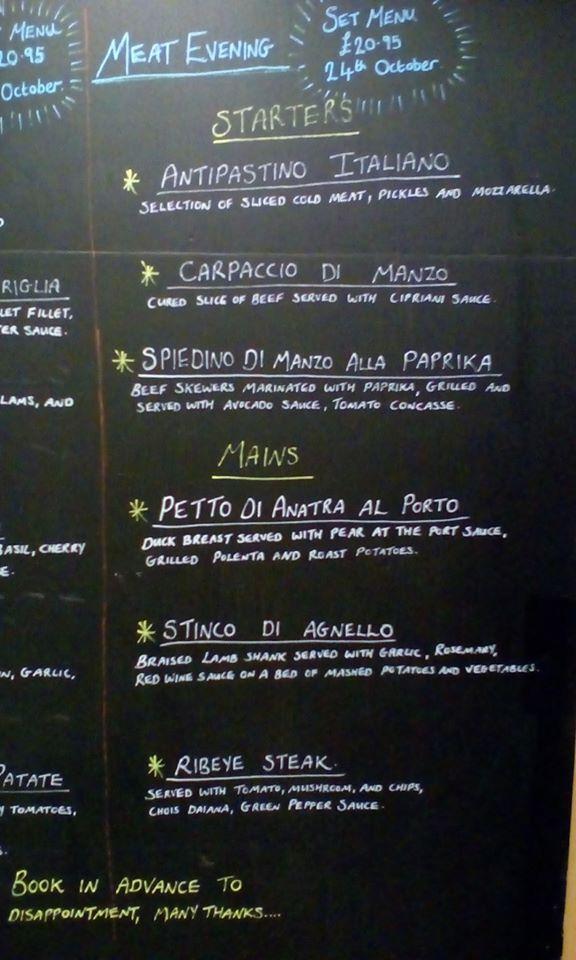 MENU
20.95
October.
MEAT EVENING
SET MENU
£20.95
24th October
STARTERS
* ANTIPASTINO ITALIANO
SELECTION OF SLICED COLD MEAT, PICKLES AND MOZZARELLA.
* CARPACCIO DI MANZO
CURED SLICE OF BEEF SERVED WITH CIPRIANI SAUCE.
* SPIEDINO DI MANZO ALLA PAPRIKA
BEEF SKEWERS MARINATED WITH PAPRIKA, GRILLED AND
SERVED WITH AVOCADO SAUCE, TOMATO CONCASSE.
MAINS
* PETTO DI ANATRA AL PORTO
DUCK BREAST SERVED WITH PEAR AT THE PORT SAUCE,
GRILLED POLENTA AND ROAST POTATOES.
* STINCO DI AGNELLO
BRAISED LAMB SHANK SERVED WITH GARLIC, ROSEMARY,
RED WINE SAUCE ON A BED OF MASHED POTATOES AND VEGETABLES.
* RIBEYE STEAK.
SERVED WITH TOMATO, MUSHROOM, AND CHIPS,
CHOIS DAIANA, GREEN PEPPER SAUCE.
RIGLIA
LET FILLET,
ER SAUCE.
LAMS, AND
BASIL, CHERRY
E.
N, GARLIC,
PATATE
Y TOMATOES,
S.
BOOK IN ADVANCE TO
DISAPPOINTMENT, MANY THANKS....